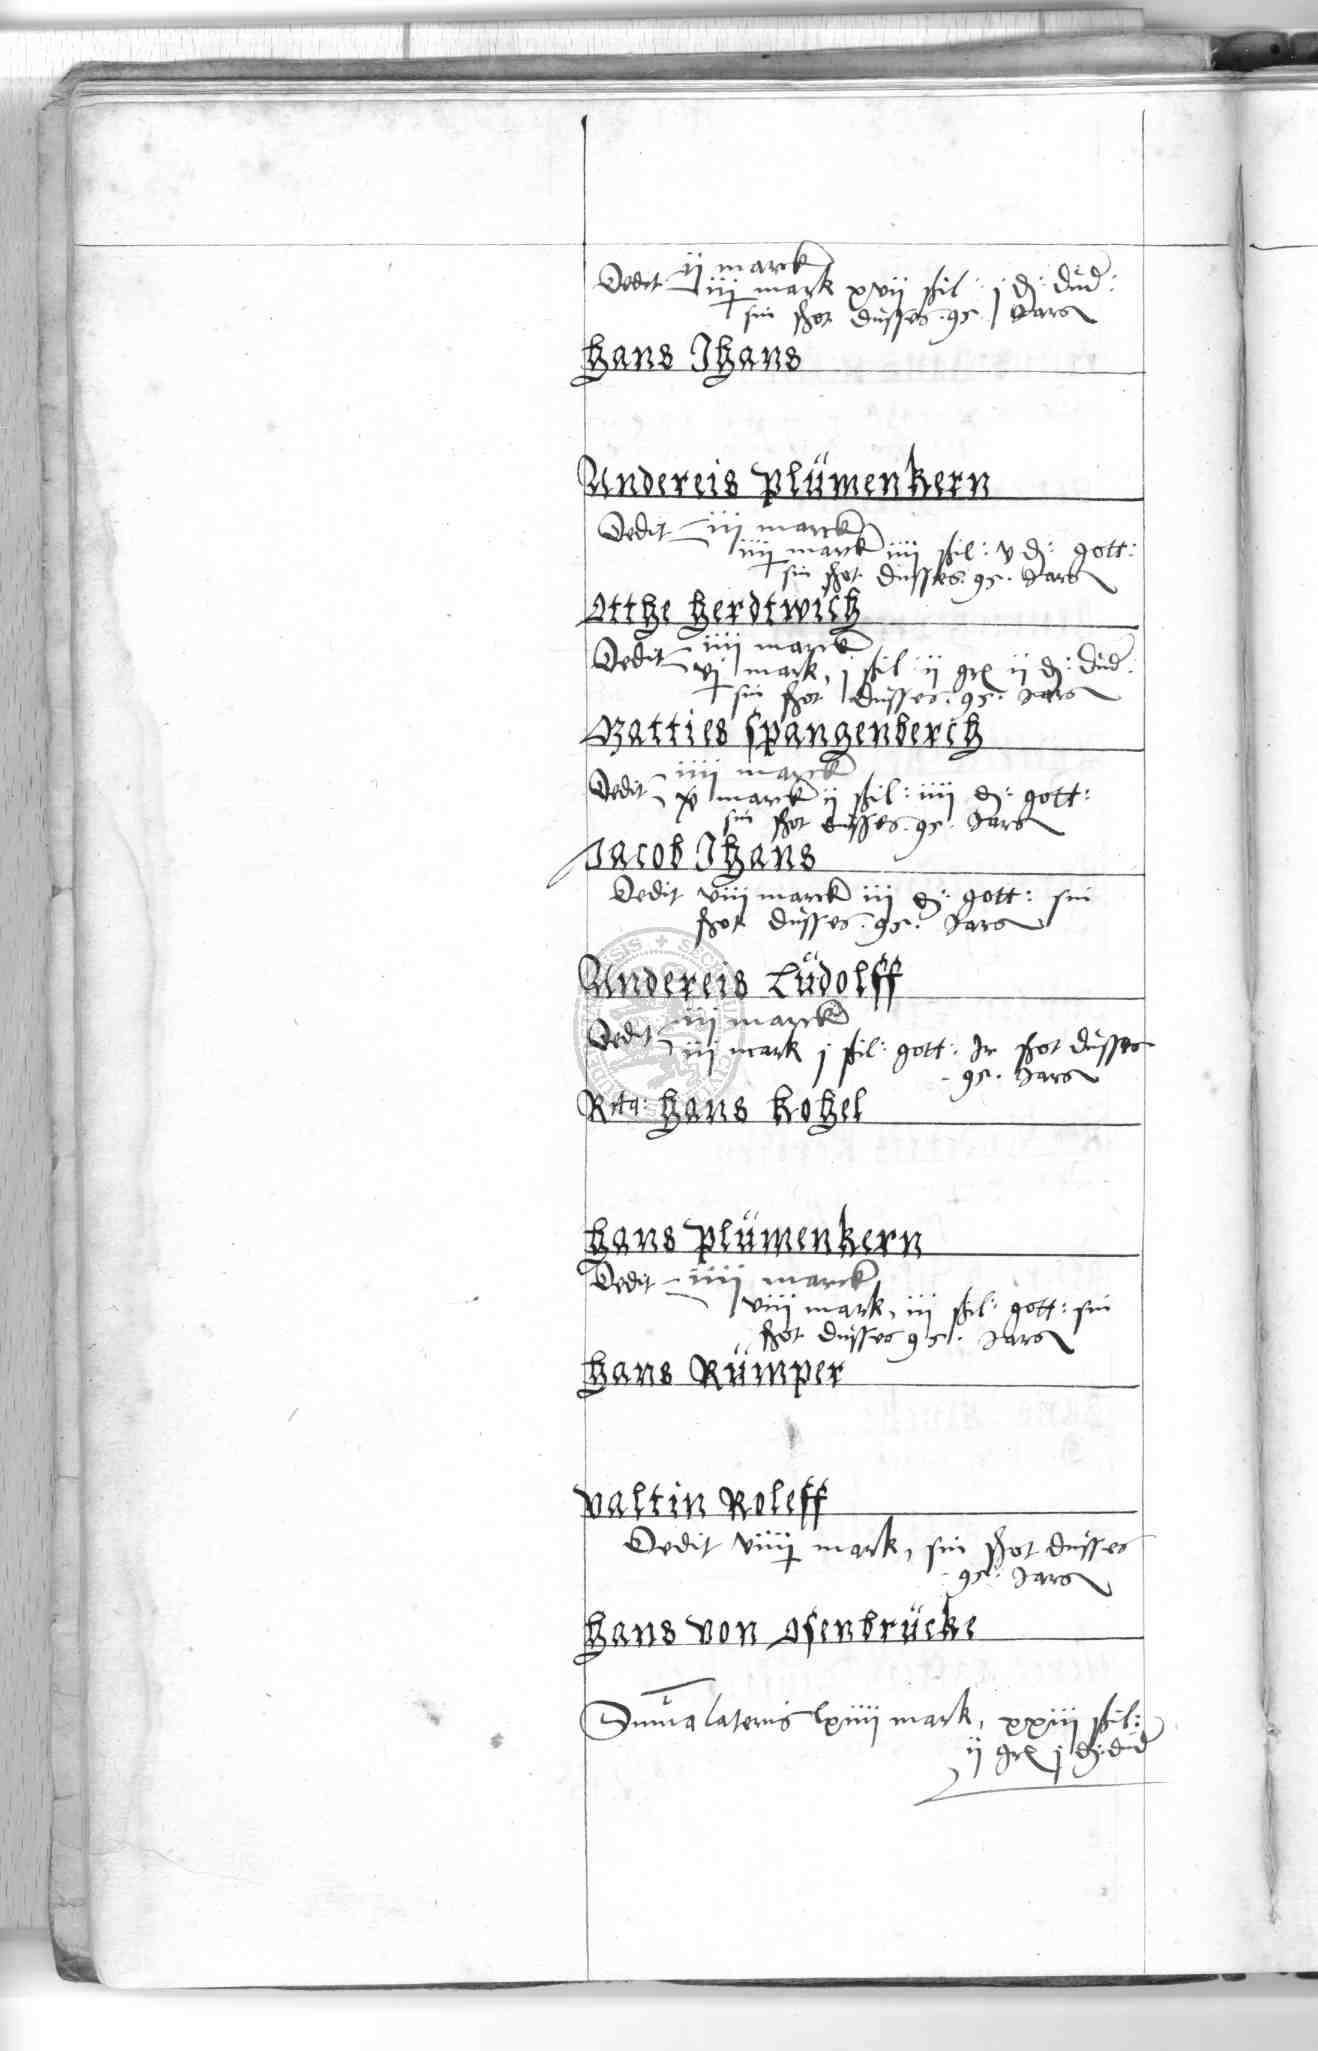 Dedit ij marck
iij mark xvij ßil: j ₰: dud:
sin shot dusses .95. Jars
Hans Jhans
Andereis Plümenkern
Dedit iij marck
iiij marck iiij ßil: v ₰: gott:
sin shot dusses .95. Jars
Otthe Herdtwich
Dedit iiij marck
vj mark, j ßil ij grs ij ₰: dud:
sin shot dusses .95. Jars
Matties Spangenberch
Dedit iiij marck
marck ij ßil: iiij ₰: gott:
sin shot dusses .95. Jars
Jacob Jhans
Dedit viij marck iij ₰: gott: sin
shot dusses .95. Jars
Andereis Lüdolff
Dedit iij marck
iij mark j ßil: gott: Jr shot dusses
.95. Jars
Rita: Hans Kohel
Hans Plümenkern
Dedit iiij marck
viij mark, iij ßil: gott: sin
shot dusses 95. Jars
Hans Rümper
Valtin Roleff
Dedit viiij mark, sin shot dusses
.95. Jars
Hans von Osenbrücke
Suma lateris lxiiij mark, xxiij ßil:
ij grs j ₰: dud